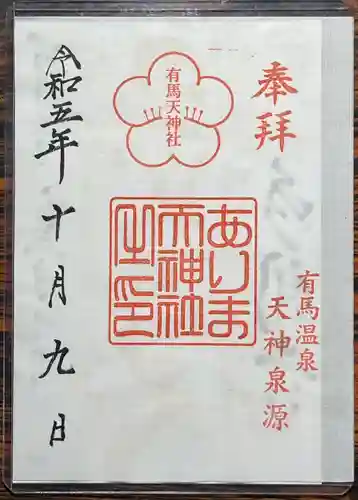 奉拝
有馬温泉
天神泉源
有馬天神社
ありま
天神社
之印
令和五年十月九日